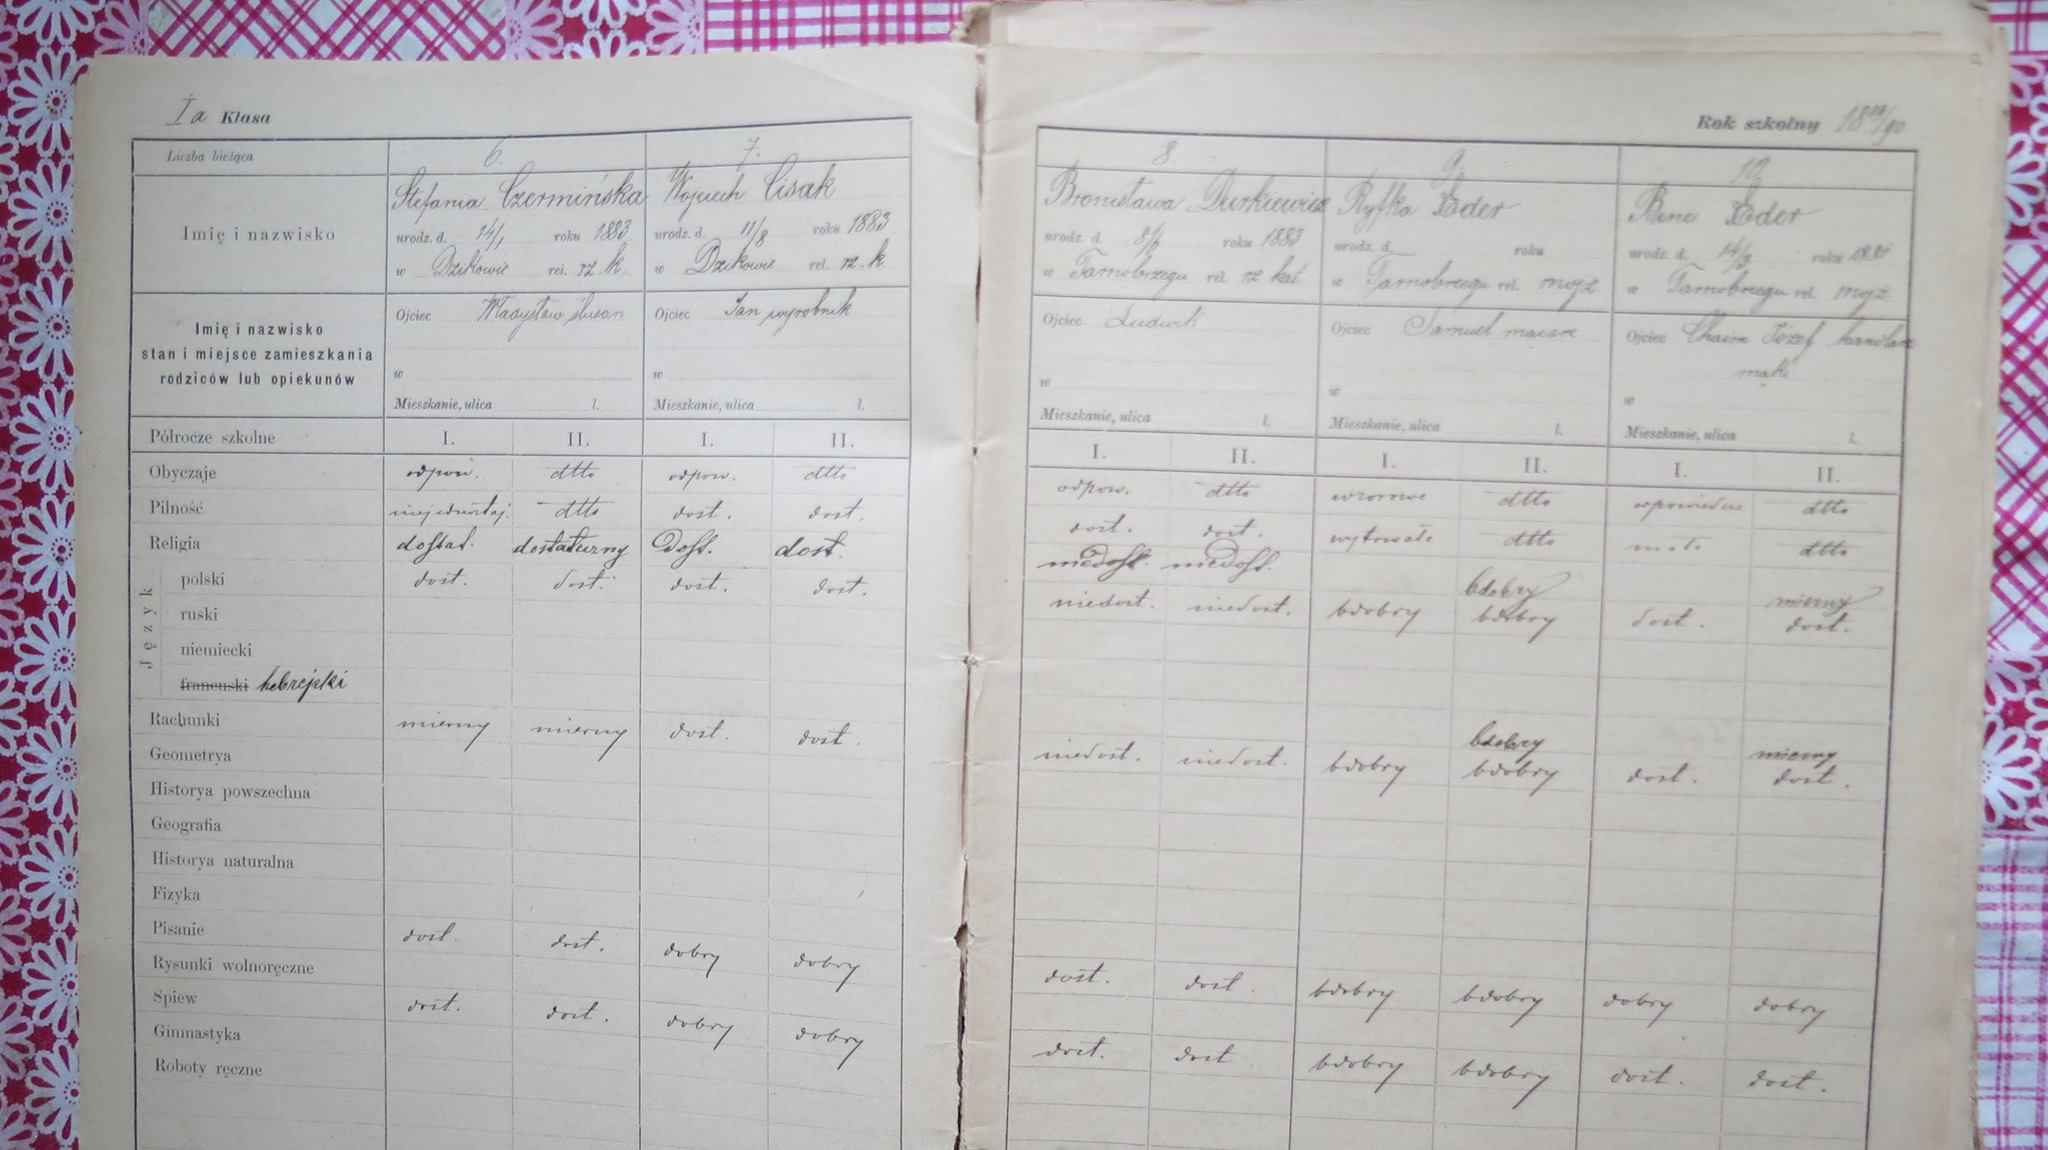 Ia Klasa
Rok szkolny 1889/90
Liczba bieżąca 6. 7. 8. 9. 10.
Imię i nazwisko
Stefania Czermińska
urodz. d. 14/1 roku 1883
w Dzikowie rel. rz. k.
Wojciech Cisak
urodz. d. 11/8 roku 1883
w Dzikowie rel. rz. k.
Bronisława Durkiewicz
urodz. d. roku 1883
w Tarnobrzegu rel. rz kat
Ryfka Eder
urodz. d. roku
w Tarnobrzegu rel. mojż
Bine Eder
urodz. d. roku
w Tarnobrzegu rel. mojż
Imię i nazwisko
stan i miejsce zamieszkania
rodziców lub opiekunów
Ojciec Władysław
w
Mieszkanie, ulica l.
Ojciec Jan wyrobnik
w
Mieszkanie, ulica l.
Ojciec Ludwik
w
Mieszkanie, ulica l.
Ojciec Samuel
w
Mieszkanie, ulica l.
Ojciec Chaim Józef handlarz
mąki
w
Mieszkanie, ulica l.
Półrocze szkolne I. II. I. II. I. II. I. II. I. II.
Obyczaje odpow. dtto odpow. dtto odpow. dtto wzorowe dtto odpowiednie dtto
Pilność niejednostaj. dtto dost. dost. dost. dost. wytrwała dtto mała dtto
Religia dostat. dostateczny Dost. dost. niedost. niedost. bdobry mierny
Język
polski dost. dost. dost. dost. niedost. niedost. bdobry bdobry dost. dost.
ruski
niemiecki
francuski hebrejski bdobry mierny
Rachunki mierny mierny dost. dost. niedost. niedost. bdobry bdobry dost. dost.
Geometrya
Historya powszechna
Geografia
Historya naturalna
Fizyka
Pisanie dost. dost. dobry dobry dost. dost. bdobry bdobry dobry dobry
Rysunki wolnoręczne
Śpiew dost. dost. dobry dobry dost. dost bdobry bdobry dost. dost.
Gimnastyka
Roboty ręczne